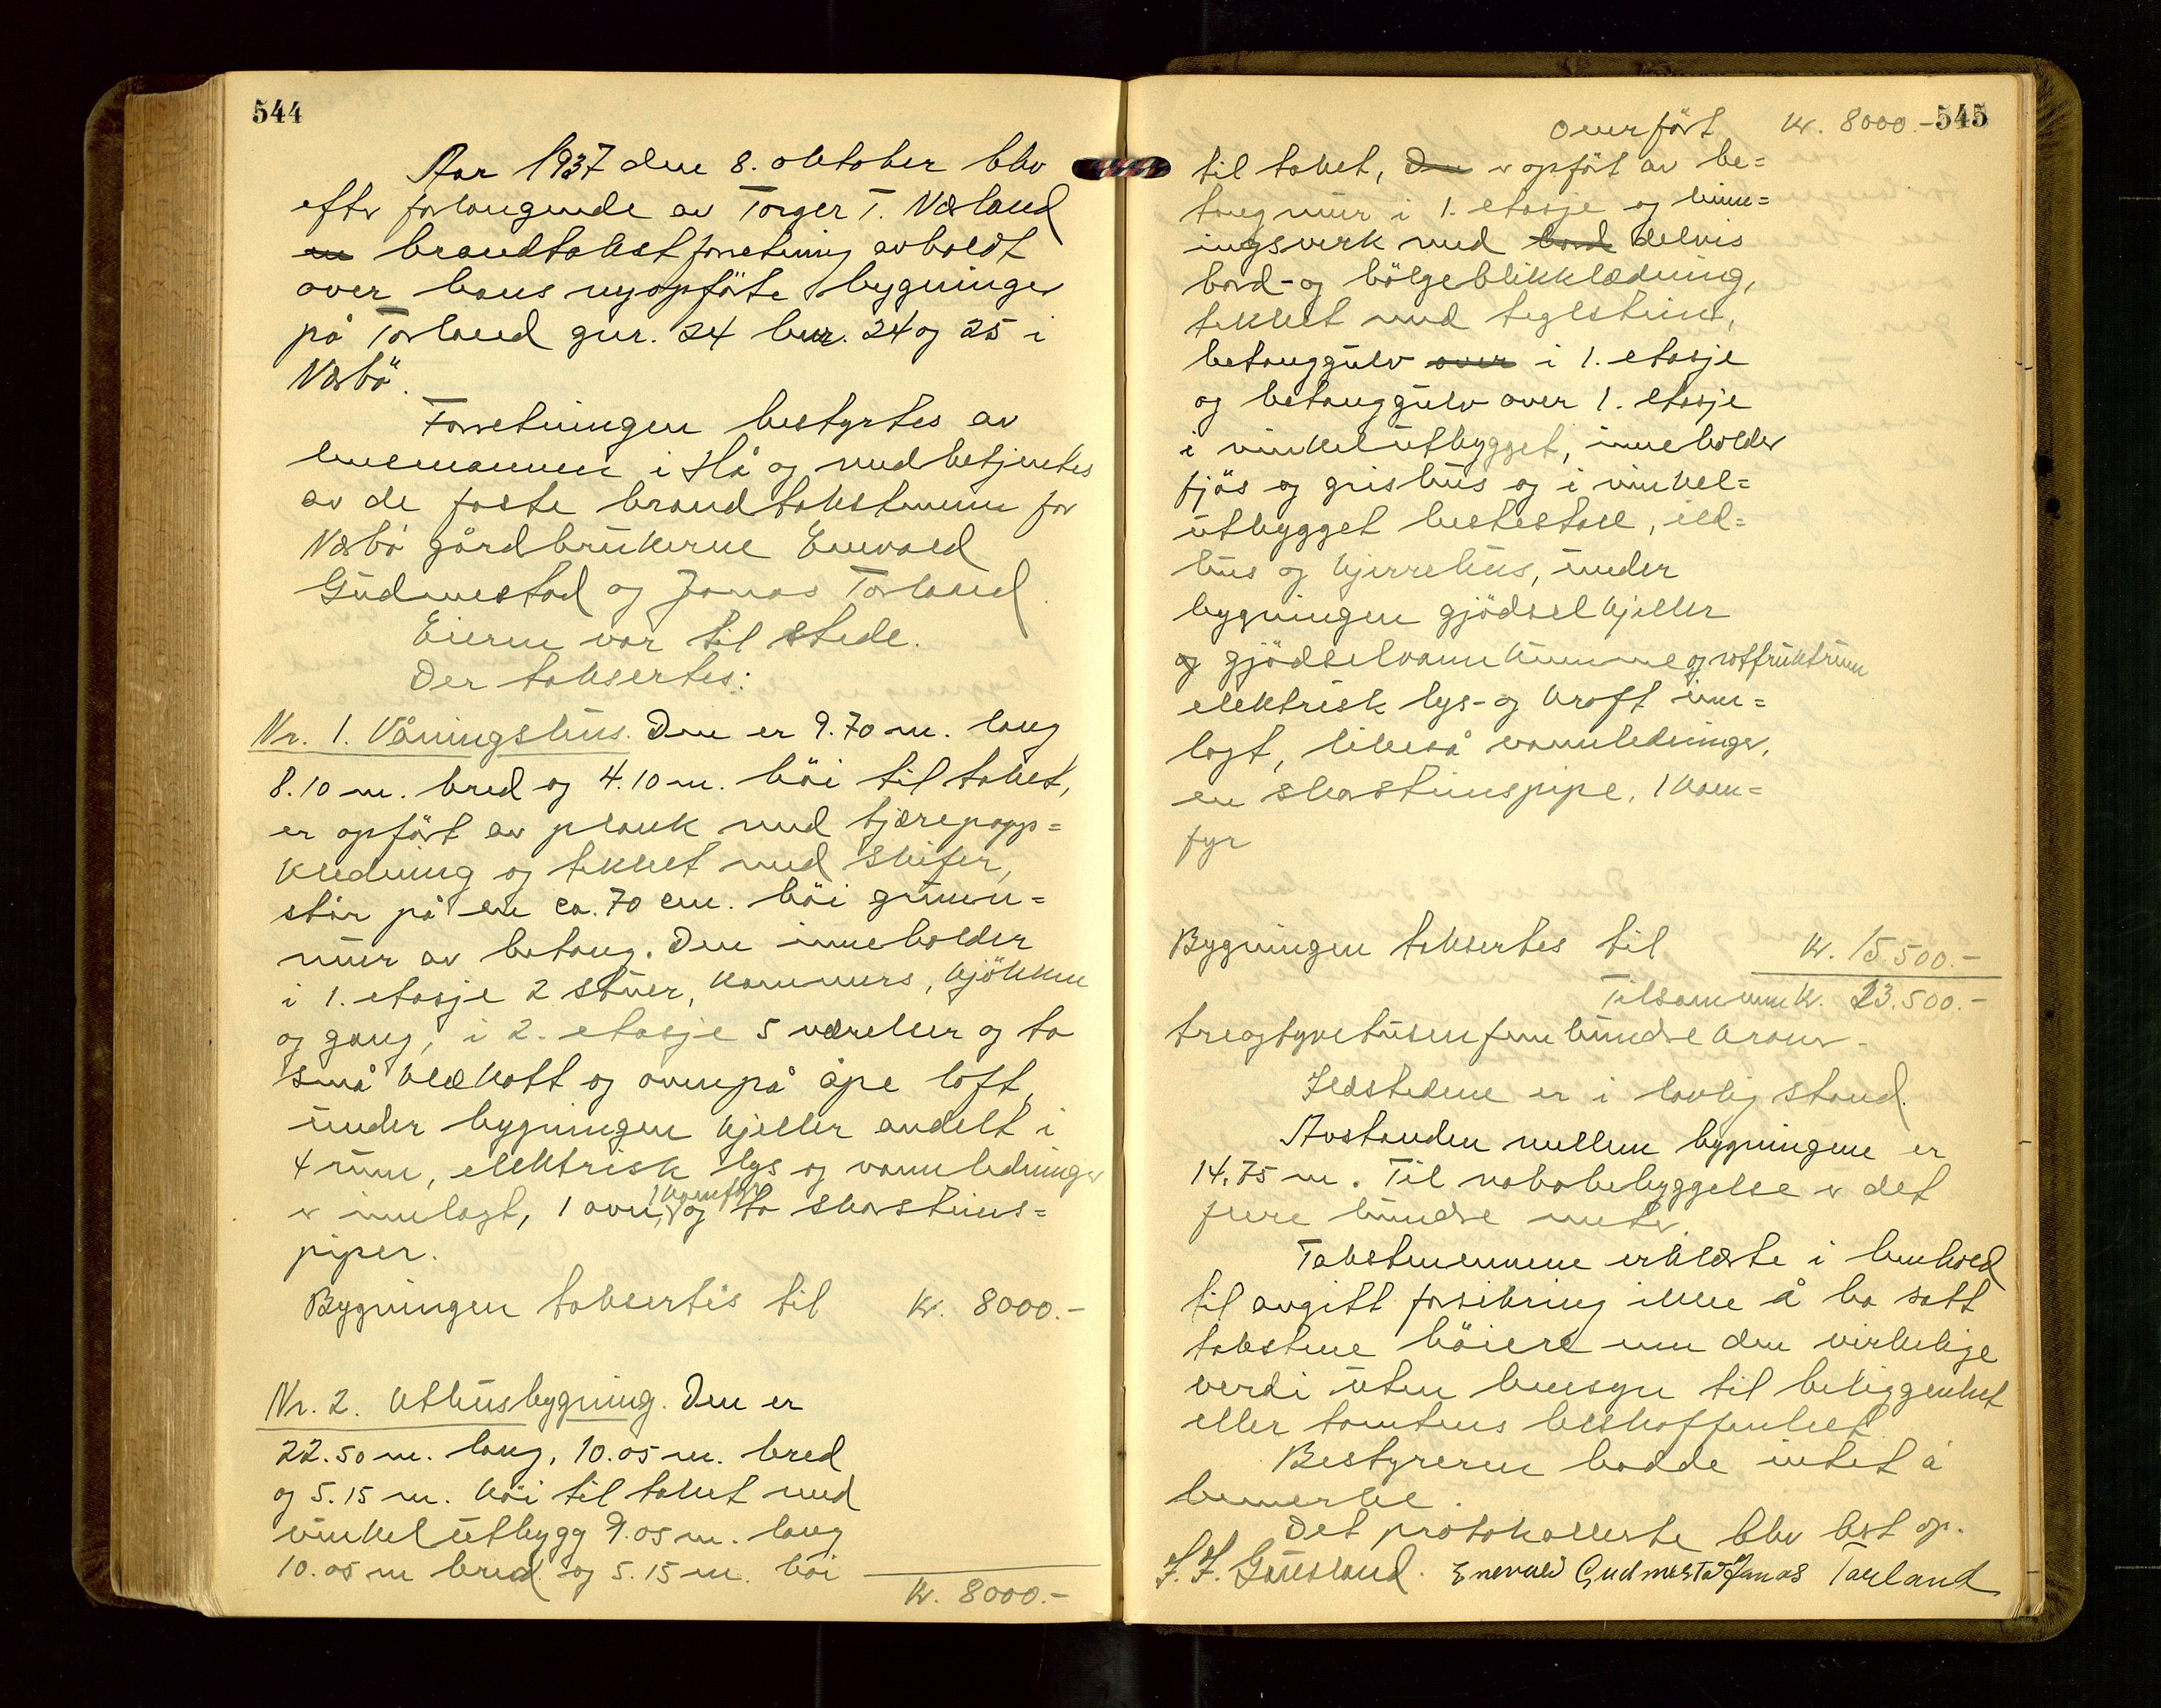 544
Aar 1937 den 8. oktober blev
efter forlangende av Torger T. Nærland
en brandtakstforretning avholdt
over hans nyopførte bygninger
på Torland gnr. 24 bnr. 24 og 25 i
Nærbø.
Forretningen bestyrtes av
lensmannen i Hå og medbetjentes
av de faste brandtakstmenn for
Nærbø gårdbrukerne Enevald
Gudmestad og Jonas Torland.
Eieren var til stede.
Der taksertes:
Nr. 1. Våningshus. Den er 9.70 m. lang
8.10 m. bred og 4.10 m. høi til taket,
er opført av plank med tjærepapp=
kledning og tekket med skifer,
står på en ca. 70 cm. høi grunn=
mur av betong. Den inneholder
i 1. etasje 2 stuer, kammers, kjøkken
og gang, i 2. etasje 5 værelser og to
små klækott og ovenpå åpe loft,
under bygningen kjeller avdelt i
4 rum, elektrisk lys og vannledninger
er innlagt, 1 ovn, 1 komfyr og to skorstens=
piper.
Bygningen taksertes til kr. 8000.-
Nr. 2. Uthusbygning. Den er
22.50 m. lang, 10.05 m. bred
og 5.15 m. høi til taket med
vinkelutbygg 9.05 m. lang
10.05 m bred og 5.15 m. høi
kr. 8000.-
545
Overført kr. 8000.-
til taket, Den er opført av be=
tongmur i 1. etasje og binn=
ingsverk med bord delvis
bord- og bølgeblikklædning,
tekket med teglstein,
betonggulv over i 1. etasje
og betonggulv over 1. etasje
i vinkelutbygget, inneholder
fjøs og grishus og i vinkel=
utbygget hestestall, ild=
hus og kjerrehus, under
bygningen gjødselkjeller
og gjødselvannkumme og rotfruktrum
elektrisk lys- og kraft inn=
lagt, likeså vannledninger,
en skorstenspipe, 1 kom=
fyr
Bygningen taksertes til kr. 15 500.-
Tilsammen kr. 23.500.-
treogtyvetusenfemhundre kroner.
Ildstedene er i lovlig stand.
Avstanden mellem bygningene er
14.75 m. Til nabobebyggelse er det
flere hundre meter.
Takstmennene erklærte i henhold
til avgitt forsikring ikke å ha satt
takstene høiere enn den virkelige
verdi uten hensyn til beliggenhet
eller tomtens beskaffenhet.
Bestyreren hadde intet å
bemerke.
Det protokollerte blev lest op.
Enevald Gudmestad Jonas Torland